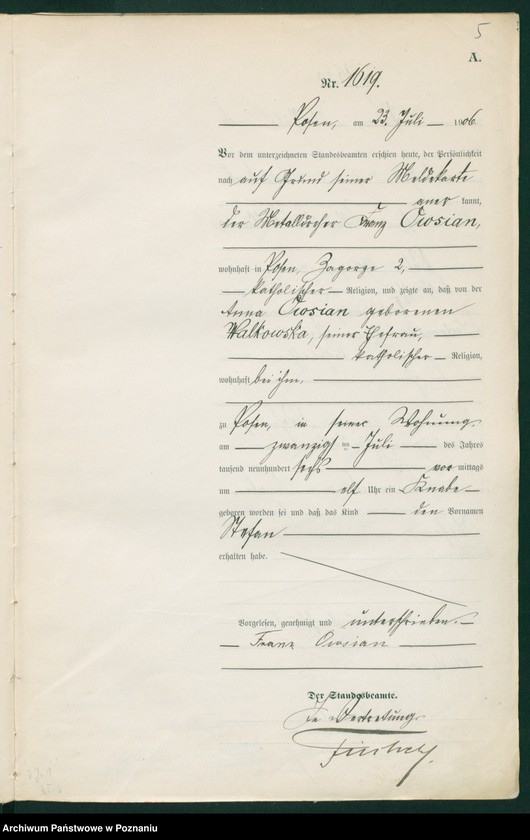 5
A.
Nr. 1619.
Posen, am 23. Juli 1906
Vor dem unterzeichneten Standesbeamten erschien heute, der Persönlichkeit
nach auf Grund seiner Meldekarte
aner kannt,
der Metalldreher Franz Owsian,
wohnhaft in Posen, Zagorze 2,
katholischer Religion, und zeigte an, daß von der
Anna Owsian geborenen
Walkowska, seiner Ehefrau,
katholischer Religion,
wohnhaft bei ihm,
zu Posen, in seiner Wohnung
am zwanzigsten Juli des Jahres
tausend neunhundert sechs vor mittags
um elf Uhr ein Knabe
geboren worden sei und daß das Kind den Vornamen
Stefan
erhalten habe.
Vorgelesen, genehmigt und unterschrieben.
Franz Owsian
Der Standesbeamte.
In Vertretung
Archiwum Państwowe w Poznaniu